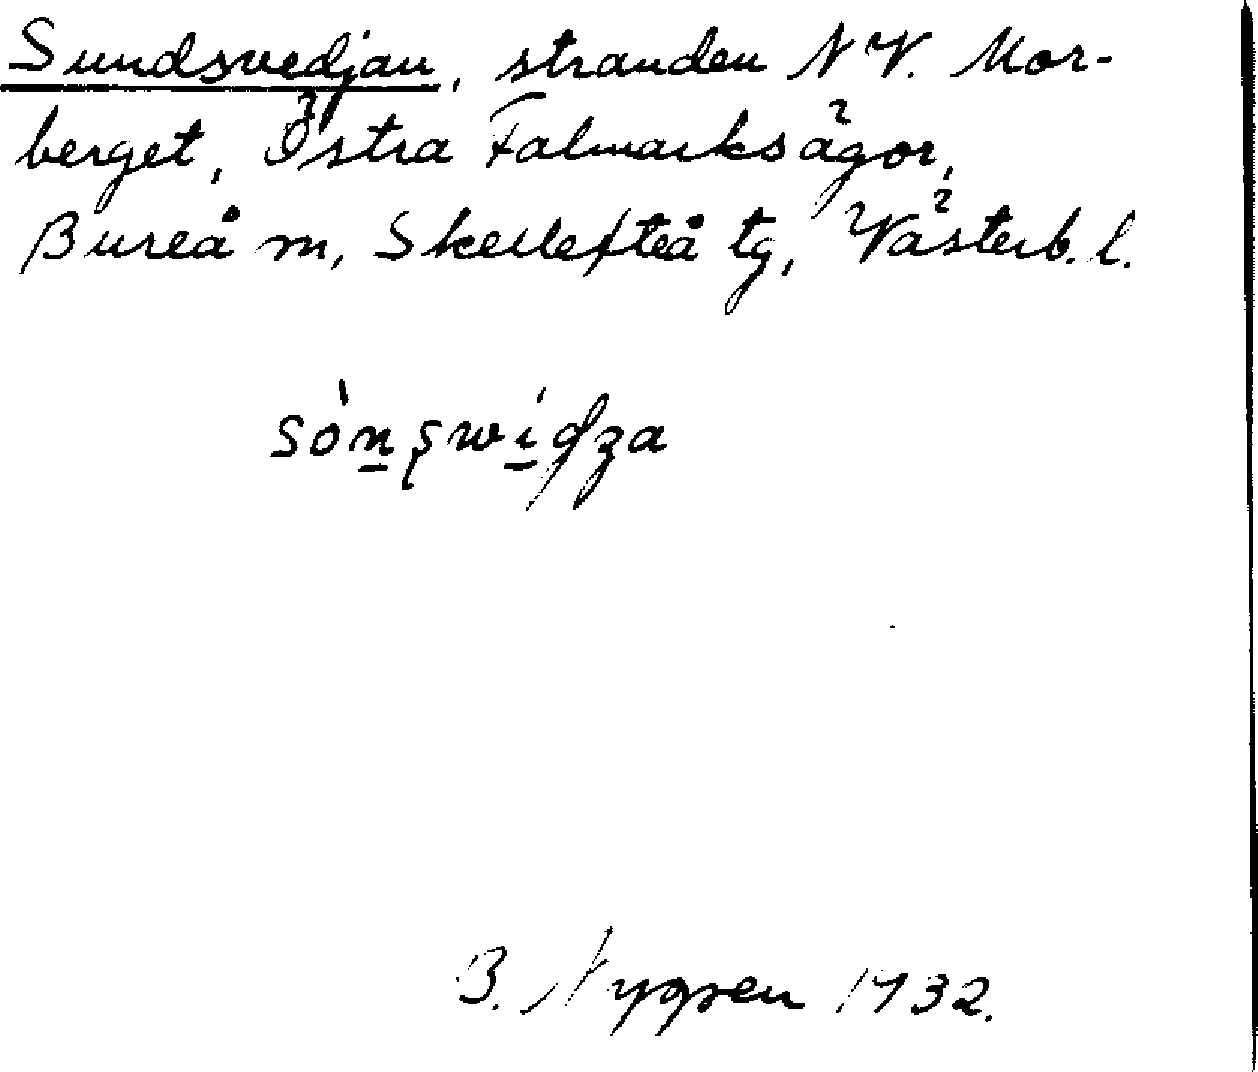 Sundsvedjan, stranden NV. Mor-
berget, Östra Falmarksägor,
Bureå m, Skellefteå tg, Västerb. l.
sòn̲şwi̲dza
B. Nygren 1932.